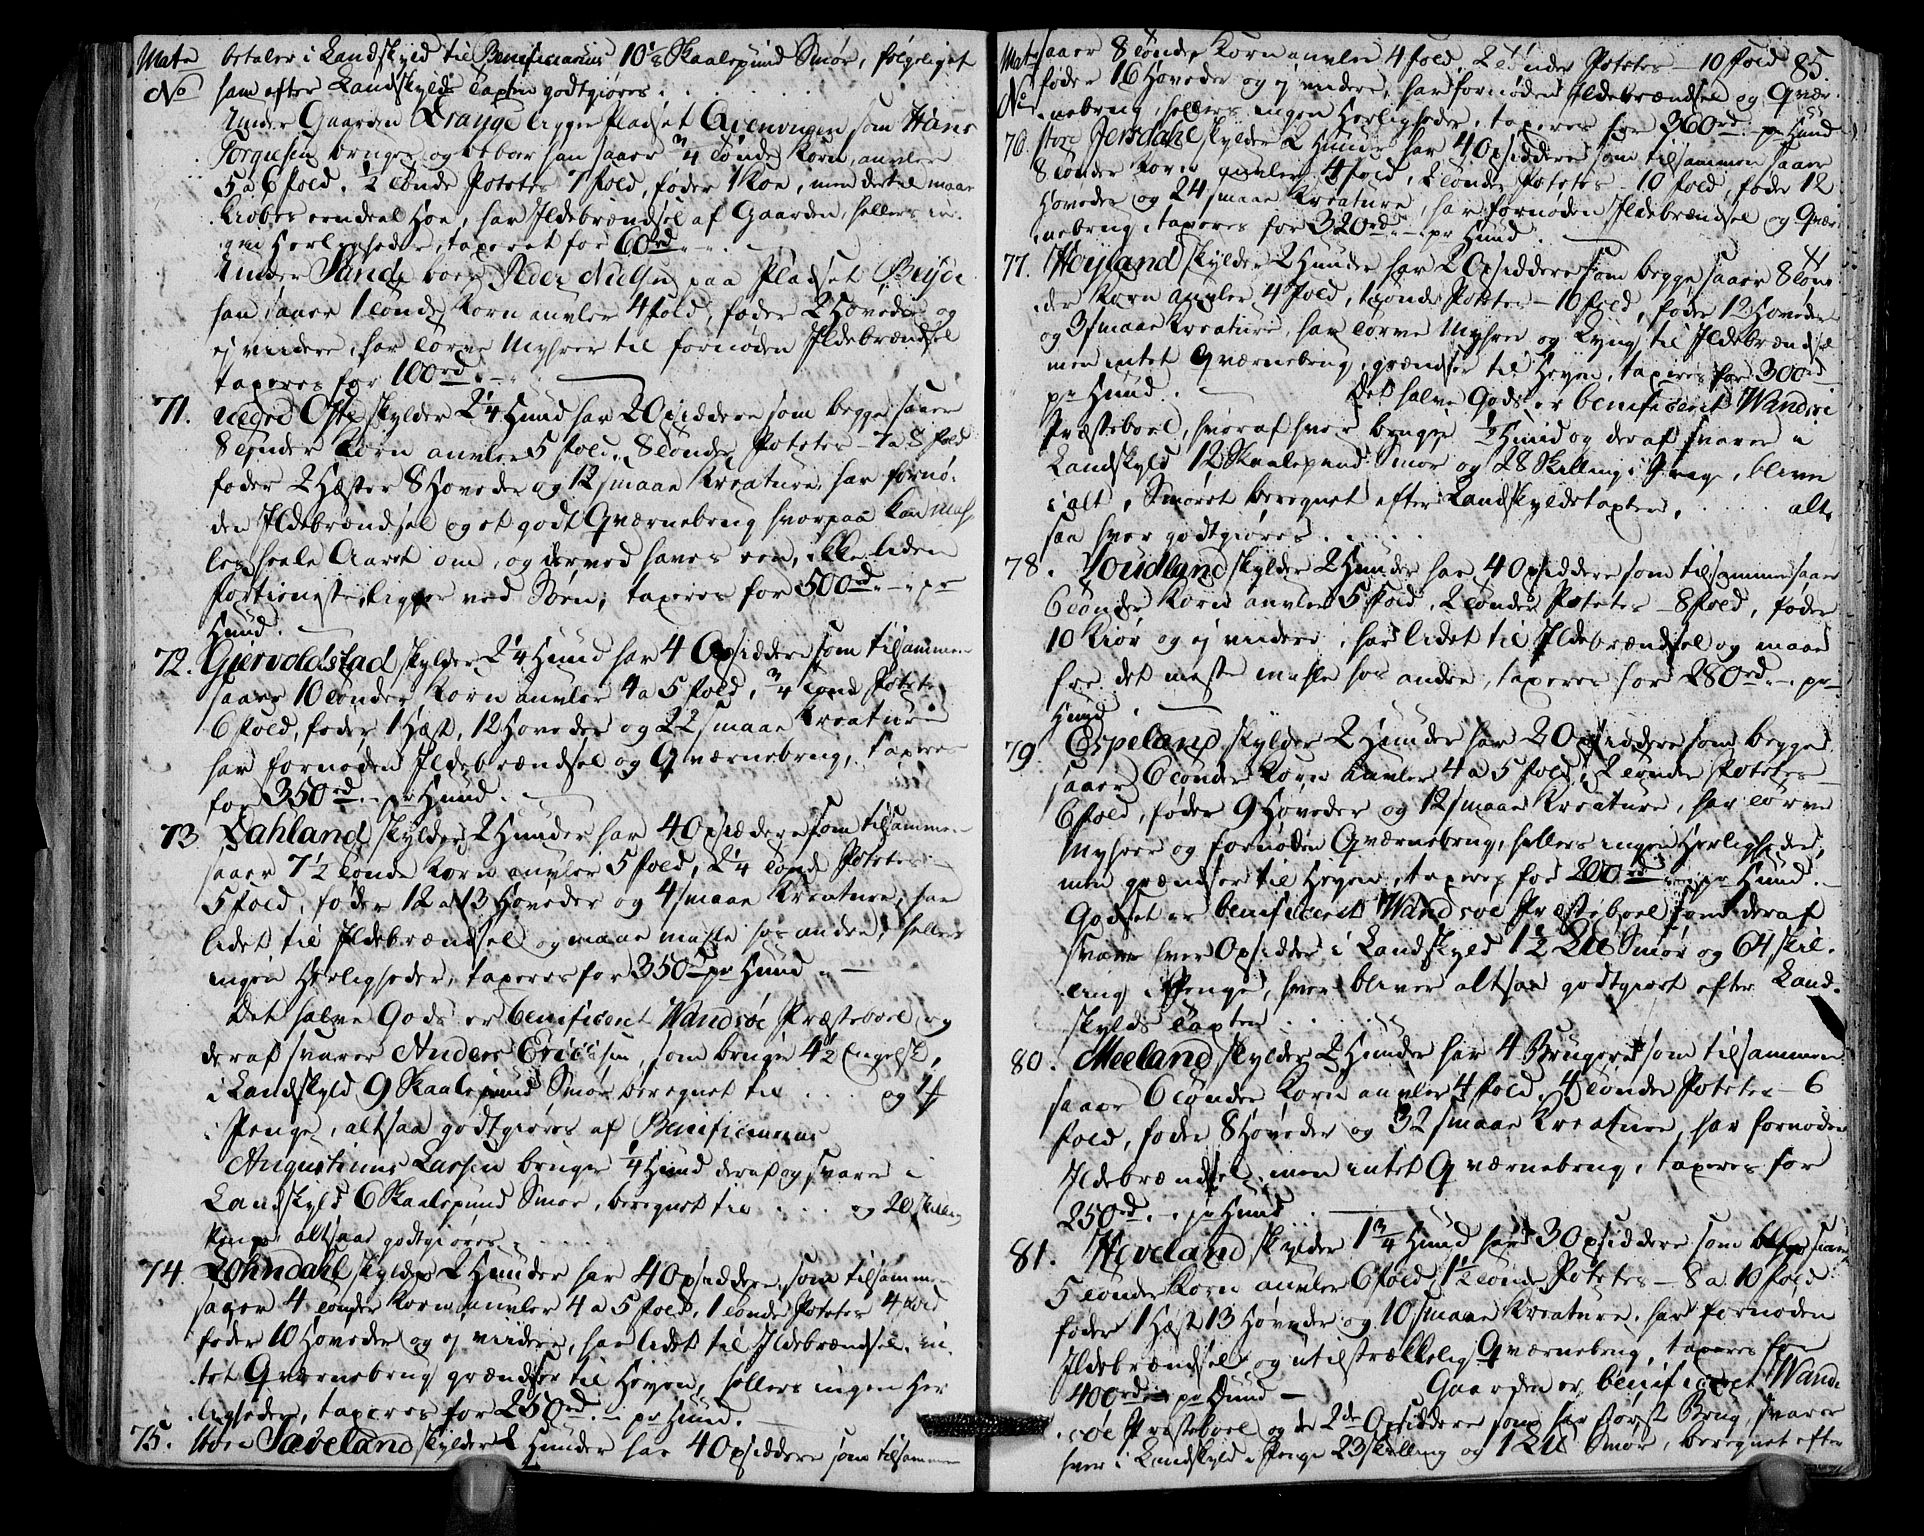 Mats betaler i Landskyld til Benificiarius 10⅛ Skaalepund Smør, følgeligst
No ham efter Landskylds Taxten godtgiøres
Under Gaarden Drange ligger Pladset Qvenvigen som Hans
Torgiesen bruger og beboer han saaer ¾ Tønde Korn, anvler
5 a 6 fold, ½ Tønde Potetes 7 fold, føder 1 Koe, men dertil maae
kiøbes eendeel Hoe, har Ildebrændsel af Gaarden, hellers in-
gen Herligheder, taxeret for 60rd
Under Sande boer Peder Nielsen paa Pladset
han saaer 1 Tønde Korn anvler 4 fold, føder 2 Høveder og
ej videre, har Torve Myhrer til fornøden Ildebrændsel
taxeres for 100rd.
71. nedre Ofte skylder 2¼ Hund har 2 Opsiddere som begge saaer
8 Tønder Korn anvler 5 fold, 8 Tønder Potetes - 7 a 8 fold
føder 2 Hæster 8 Høveder og 12 smaae Kreature, har fornø-
den Ildebrændsel og et godt Qværnebrug hvorpaa kan mah-
les heele Aaret om, og derved haves een ikke liden
Portion ligger ved Søen, taxeres for 500rd. pr
Hund.
72. Giervoldstad skylder 2¼ Hund har 4 Opsiddere som tilsammen
saaer 10 Tønder Korn anvler 4 a 5 fold, ¾ Tønd Potetes
6 fold, føder 1 Hæst, 12 Høveder og 22 smaae Kreature
har fornøden Ildebrændsel og Qværnebrug, taxeres
for 350rd. pr Hund.
73. Dahland skylder 2 Hunder har 4 Opsiddere som tilsammen
saaer 7½ Tønde Korn anvler 5 fold, 2¼ Tønde Potetes -
5 fold, føder 12 a 13 Høveder og 4 smaae Kreature, har
lidet til Ildebrændsel og maae mahle hos andre, hellers
ingen Herligheder, taxeres for 350rd pr Hund. -
Det halve Gods er benificeret Wandsøe Præsteboel og
deraf svarer Anders Ericksen, som bruger 4½ Engelsk,
i Landskyld 9 Skaalepund Smør beregnet til . . . og 1
i Penge, altsaa godtgiøres af Benificiarius
Augustinus Larsen bruger ¼ Hund deraf og svarer i
Landskyld 6 Skaalepund Smør, beregnet til . . . og 20 skilling
Penge altsaa godtgiøres.
74. Lohndahl skylder 2 Hunder har 4 Opsiddere, som tilsammen
saaer 4 Tønder Korn anvler 4 a 5 fold, 1 Tønde Potetes 4 fold
føder 10 Høveder og ej viidere, har lidet til Ildebrændsel, in-
tet Qværnebrug grændser til Heyen, hellers ingen Her-
ligheder, taxeres for 250rd. pr Hund. -
75. Store Sæveland skylder 2 Hunder har 4 Opsiddere som tilsammen
Mats saaer 8 Tønder Korn anvler 4 fold, 2 Tønder Potetes - 10 fold 85.
No føder 16 Høveder og ej viidere, har fornøden Ildebrændsel og Qvær-
nebrug, hellers ingen Herligheder, taxeres for 360rd. pr Hund
76. store Jersdahl skylder 2 Hunder har 4 Opsiddere som tilsammen saaer
8 Tønder Korn anvler 4 fold, 2 Tønder Potetes - 10 fold, føder 12
Høveder og 24 smaae Kreature, har fornøden Ildebrændsel og Qvær-
nebrug, taxeres for 320rd. pr Hund.
77. Høyland skylder 2 Hunder har 2 Opsiddere som begge saaer 8 Tøn-
der Korn anvler 4 fold, 1 Tønde Potetes - 10 fold, føder 12 Høveder
og 3 smaae Kreature, har Torve Myhrer og Lyng til Ildebrændsel
men intet Qværnebrug, grændser til Heyen, taxeres for 300rd
pr Hund. Det halve Gods er benificeret Wandsøe
Præsteboel, hvoraf hver bruger ½ Hund og deraf svarer i
Landskyld 12 Skaalepund Smør og 28 Skilling i Penge, bliver
i alt, Smøret beregnet efter Landskyldstaxten, . . . alt-
saa hver godtgiøres . . .
78. Youdland skylder 2 Hunder har 4 Opsiddere som tilsammen saaer
6 Tønder Korn anvler 5 fold, 2 Tønder Potetes - 8 fold, føder
10 Kiør og ej viidere, har lidet til Ildebrændsel og maae
for det meste mahle hos andre, taxeres for 280rd. pr
Hund.
79. Espeland skylder 2 Hunder har 2 Opsiddere som begge
saaer 6 Tønder Korn anvler 4 a 5 fold, 2 Tønder Potetes -
6 fold, føder 9 Høveder og 12 smaae Kreature, har Torve
Myhrer og fornøden Qværnebrug, hellers ingen Herligheder,
men grændser til Heyen, taxeres for 200rd. pr Hund. -
Godset er benificeret Wandsøe Præsteboel som deraf
svarer hver Opsidder i Landskyld 1½ Smør og 64 skil-
ling i Penge, hver bliver altsaa godtgiort efter Land-
skylds Taxten . . .
80. Meeland skylder 2 Hunder har 4 Brugere som tilsammen
saaer 6 Tønder Korn anvler 4 fold, 4 Tønder Potetes - 6
fold, føder 8 Høveder og 32 smaae Kreature, har fornøden
Ildebrændsel, men intet Qværnebrug, taxeres for
250rd. pr Hund
81. Heveland skylder 1¾ Hund har 3 Opsiddere som saaer
5 Tønder Korn anvler 6 fold, 1½ Tønde Potetes - 8 a 10 fold
føder 1 Hæst 13 Høveder og 10 smaae Kreature, har fornøden
Ildebrændsel og utilstrækkelig Qværnebrug, taxeres for
400rd pr Hund - Gaarden er benificeret Wand-
søe Præsteboel og de 2de Opsiddere som har størst Brug, svarer
hver i Landskyld i Penge 23 skilling og 1 Smør, beregnet efter